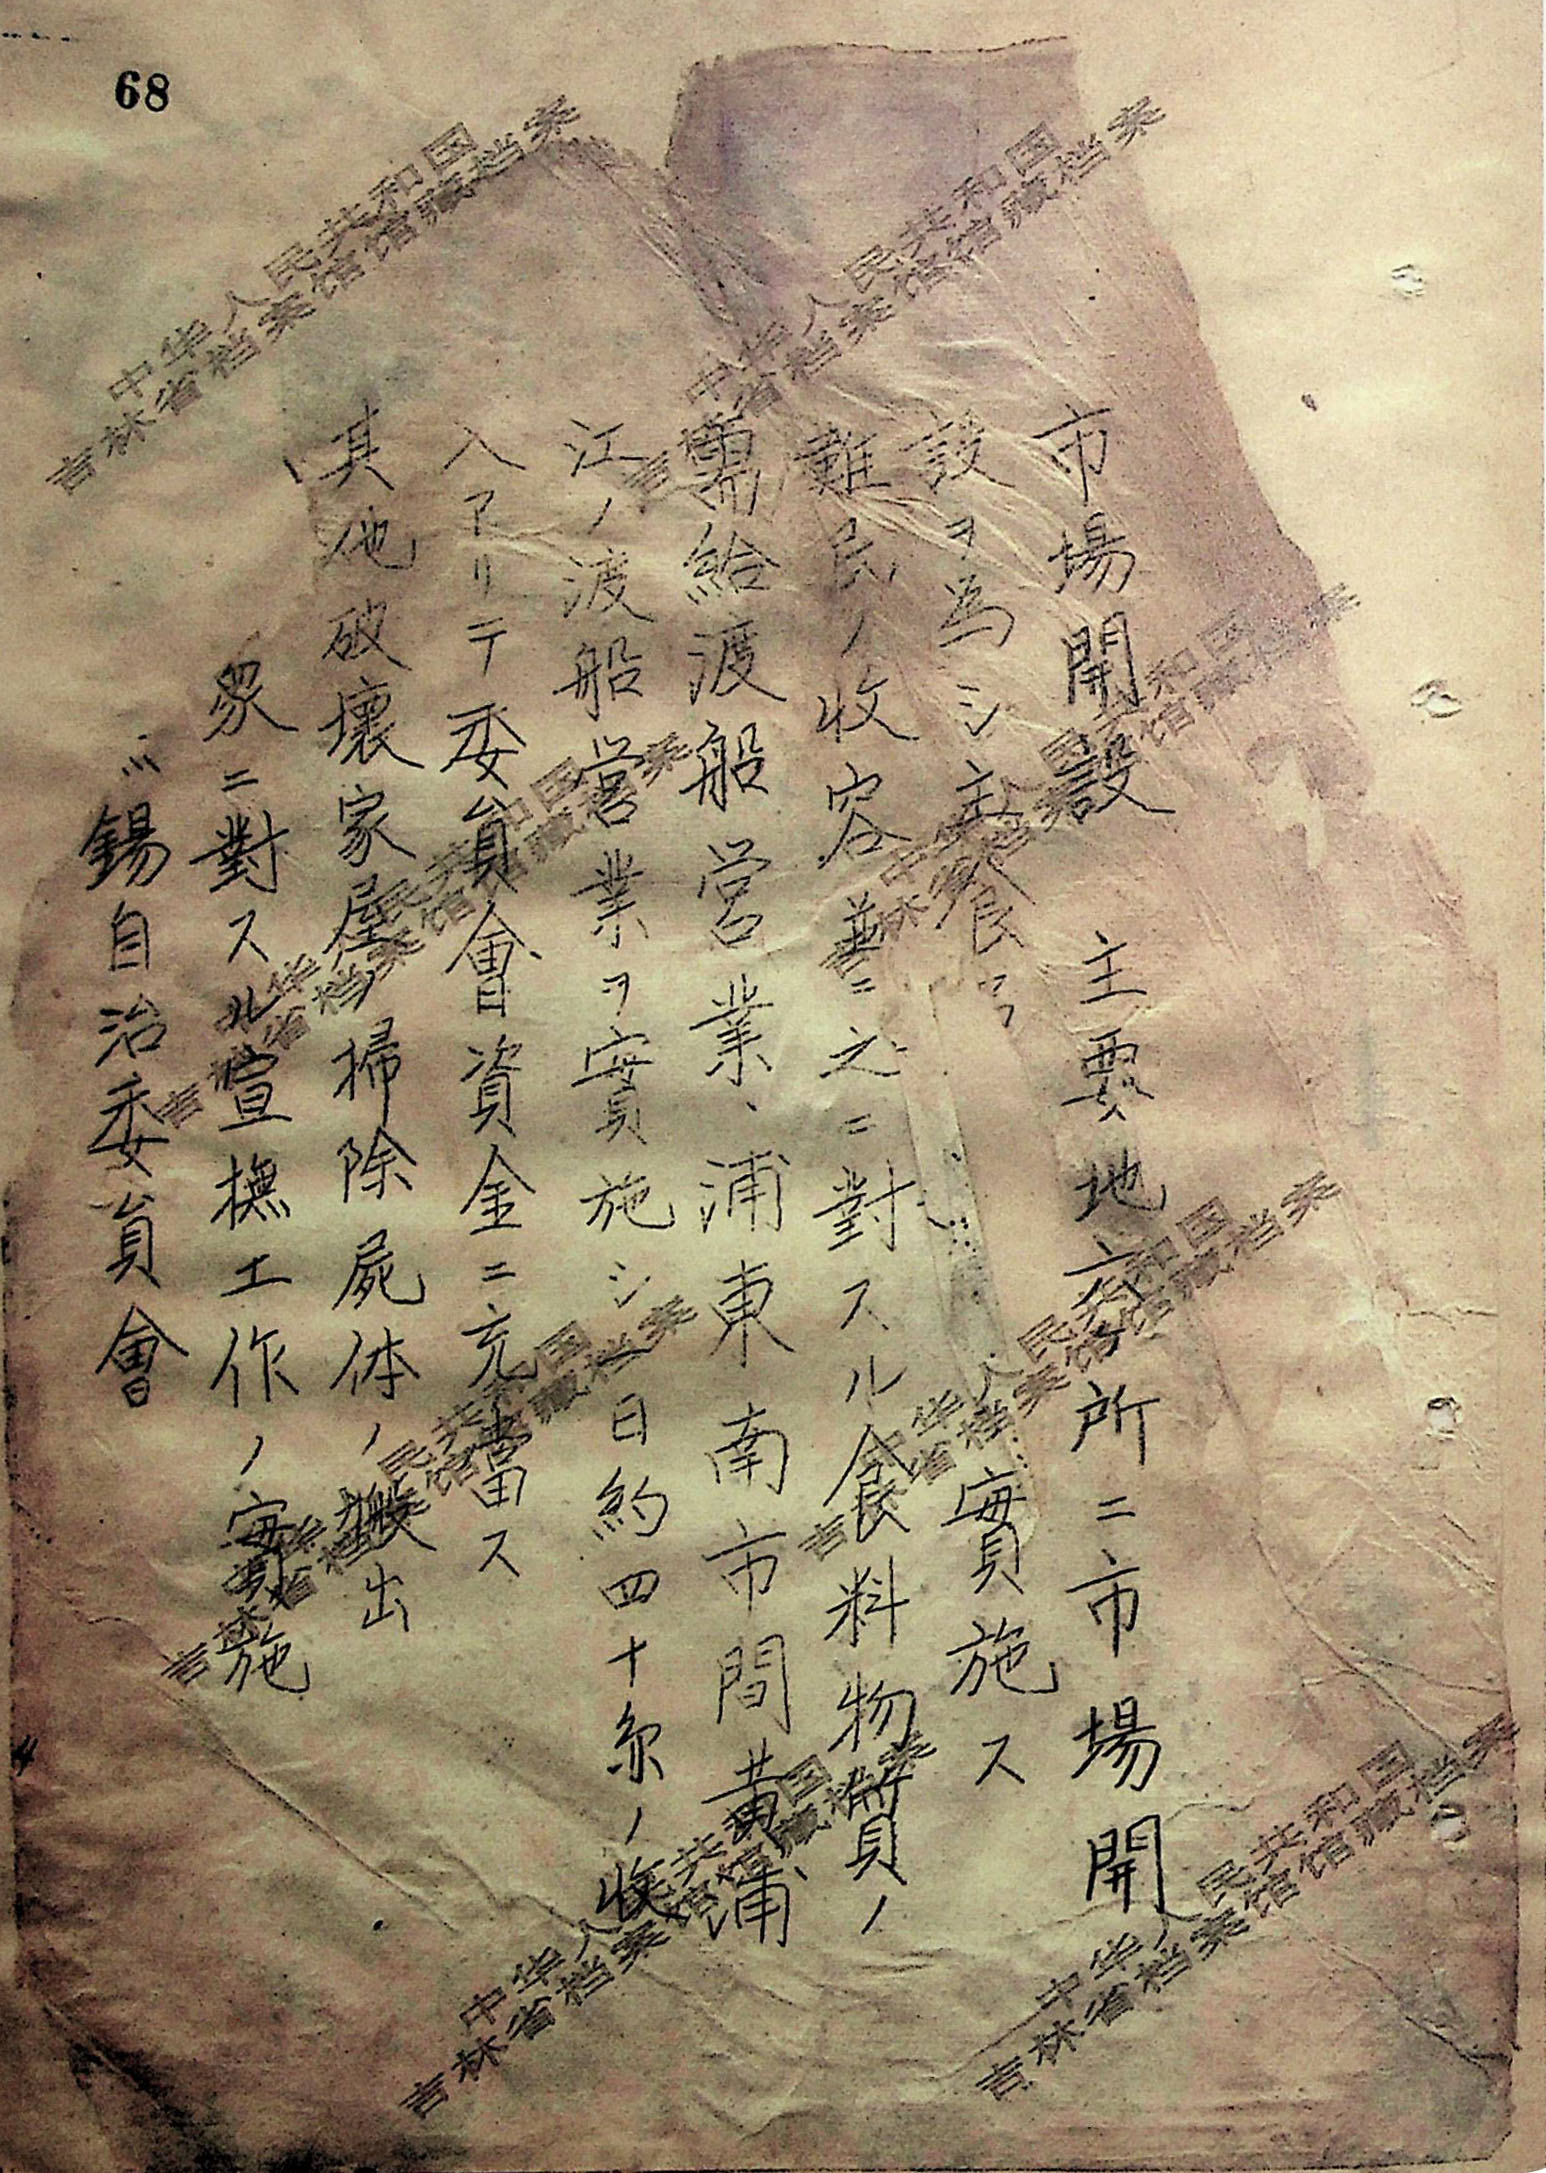 68
市場開設　主要地六ヶ所ニ市場開
設ヲ為シ　實施ス
難民ノ收容並ニ之ニ對スル食料物質ノ
需給渡船営業、浦東南市間黄浦
江ノ渡船営業ヲ實施シ一日約四十余ノ收
入アリテ委員會資金ニ充當ス
其他破壞家屋ノ掃除屍体ノ搬出
衆ニ對スル宣撫工作ノ實施
錫自治委員會
中华人民共和国
吉林省档案馆馆藏档案
中华人民共和国
吉林省档案馆馆藏档案
中华人民共和国
吉林省档案馆馆藏档案
中华人民共和国
吉林省档案馆馆藏档案
中华人民共和国
吉林省档案馆馆藏档案
中华人民共和国
吉林省档案馆馆藏档案
中华人民共和国
吉林省档案馆馆藏档案
中华人民共和国
吉林省档案馆馆藏档案